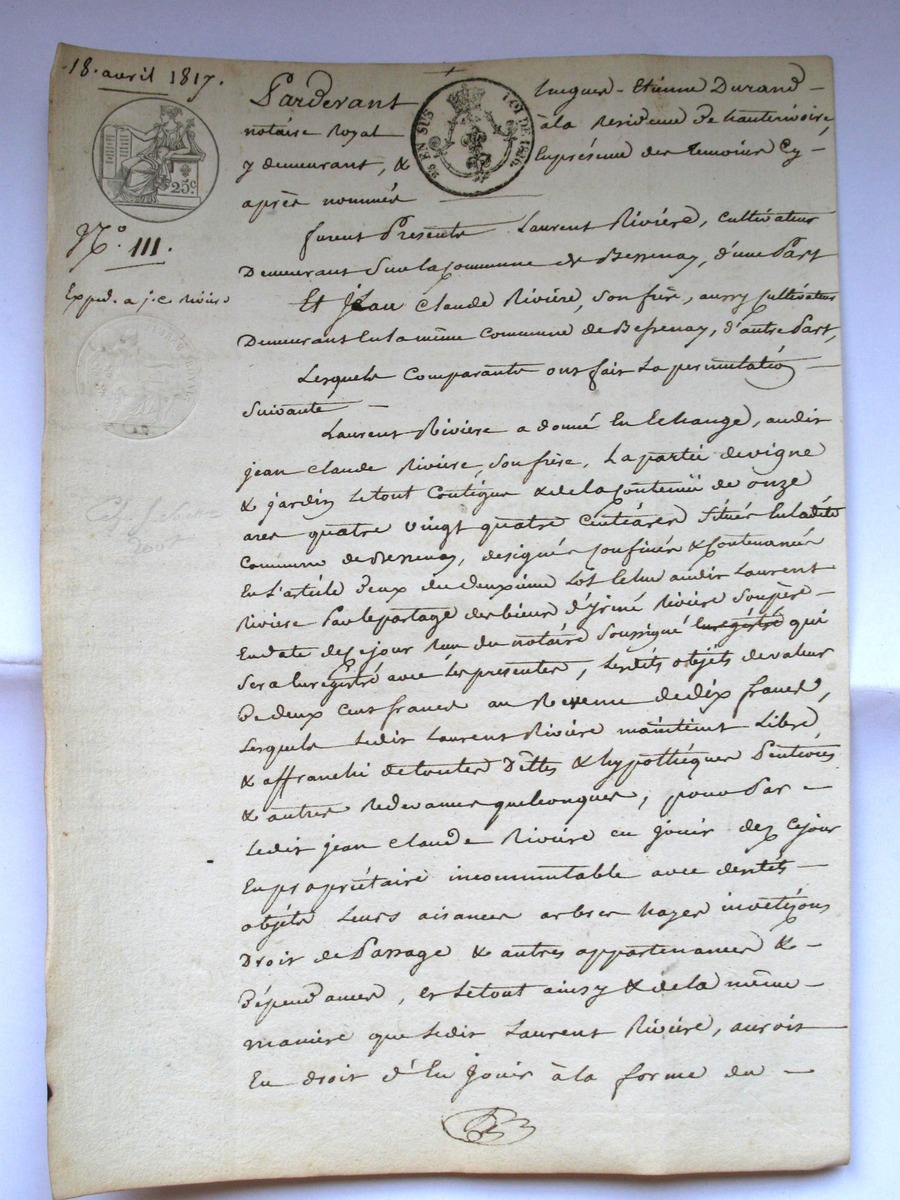 18. avril 1817.
Pardevant Jacques - Etienne Durand -
notaire Royal à la Residence de hauterivoire,
y demeurant, & En présence des temoins Cy -
après nommés
25 EN SUS
LOI DE 1816.
25c.
N.º 111.
Exped. a j. c. Rivière
furent Presents Laurent Rivière, cultivateur
Demeurant Sur la Commune de Bessenay, d'une Part
Et Jean Claude Rivière, son frère, aussy Cultivateur
Demeurant En la même Commune de Bessenay, d'autre Part,
Lesquels Comparants ont fait La permutation -
Suivante -
Laurent Rivière a donné En Echange, audit
jean Claude Rivière, son frère, La partie de vigne
& jardin Le tout Contigue & de la Contenüe de onze
ares quatre vingt quatre Centiares Située En ladite
Commune de Bessenay, designés Confinés & Contenancés
En L'article deux du deuxième Lot Echu audit Laurent
Rivière Par le partage des biens d'Irené Rivière Son père -
En date de ce jour Reçu du notaire Soussigné Enregistré qui
Sera Enregistré avec Les presentes, Lesdits objets de valeur
de deux Cent francs au Revenu de dix francs,
Lesquels Ledit Laurent Rivière maintient Libre
& affranchi de toutes Dettes & hypothèques Pentions
& autres Redevances quelconques, pour Par -
Ledit jean Claude Rivière en jouir dez ce jour
En propriétaire incommutable avec desdits -
objets Leurs aisances arbres hayes investizons
Droit de Passage & autres appartenances & -
Dépendances, et Le tout ainsy & de la même -
manière que Ledit Laurent Rivière, auroit
Eu droit d'En jouir à la forme du -